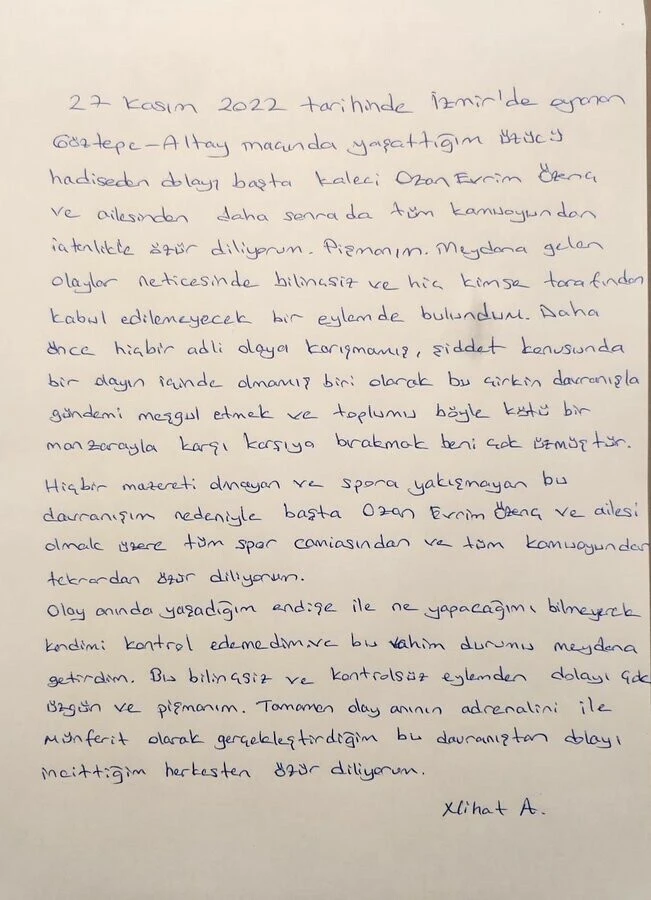 27 Kasım 2022 tarihinde İzmir'de oynanan
Göztepe-Altay maçında yaşattığım üzücü
hadiseden dolayı başta kaleci Ozan Evrim Özenç
ve ailesinden daha sonra da tüm kamuoyundan
içtenlikle özür diliyorum. Pişmanım. Meydana gelen
olaylar neticesinde bilinçsiz ve hiç kimse tarafından
kabul edilemeyecek bir eylemde bulundum. Daha
önce hiçbir adli olaya karışmamış, şiddet konusunda
bir olayın içinde olmamış biri olarak bu çirkin davranışla
gündemi meşgul etmek ve toplumu böyle kötü bir
manzarayla karşı karşıya bırakmak beni çok üzmüştür.
Hiçbir mazereti olmayan ve spora yakışmayan bu
davranışım nedeniyle başta Ozan Evrim Özenç ve ailesi
olmak üzere tüm spor camiasından ve tüm kamuoyundan
tekrardan özür diliyorum.
Olay anında yaşadığım endişe ile ne yapacağımı bilmeyerek
kendimi kontrol edemedim ve bu vahim durumu meydana
getirdim. Bu bilinçsiz ve kontrolsüz eylemden dolayı çok
üzgün ve pişmanım. Tamamen olay anının adrenalini ile
münferit olarak gerçekleştirdiğim bu davranıştan dolayı
incittiğim herkesten özür diliyorum.
A.